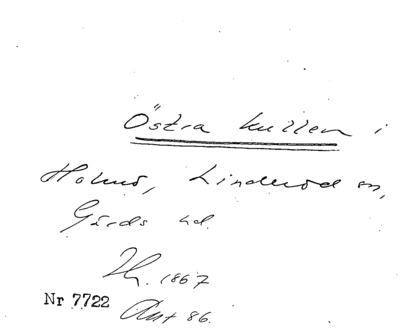 Östra kullen i
Holmö, Linderöd sn,
Gärds hd.
Th. 1867
Nr 7722
Ant 86.